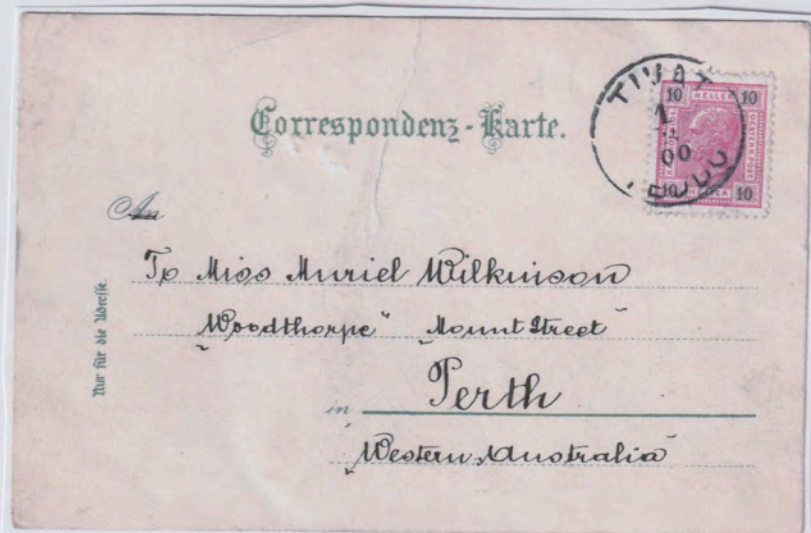 Correspondenz-Karte.
TIVAT
1
00
10 HELLER 10
OESTERR.POST
10 HELLER 10
An
To Miss Muriel Wilkinson
"Woodthorpe" Mount Street
in Perth
Western Australia
Nur für die Adresse.